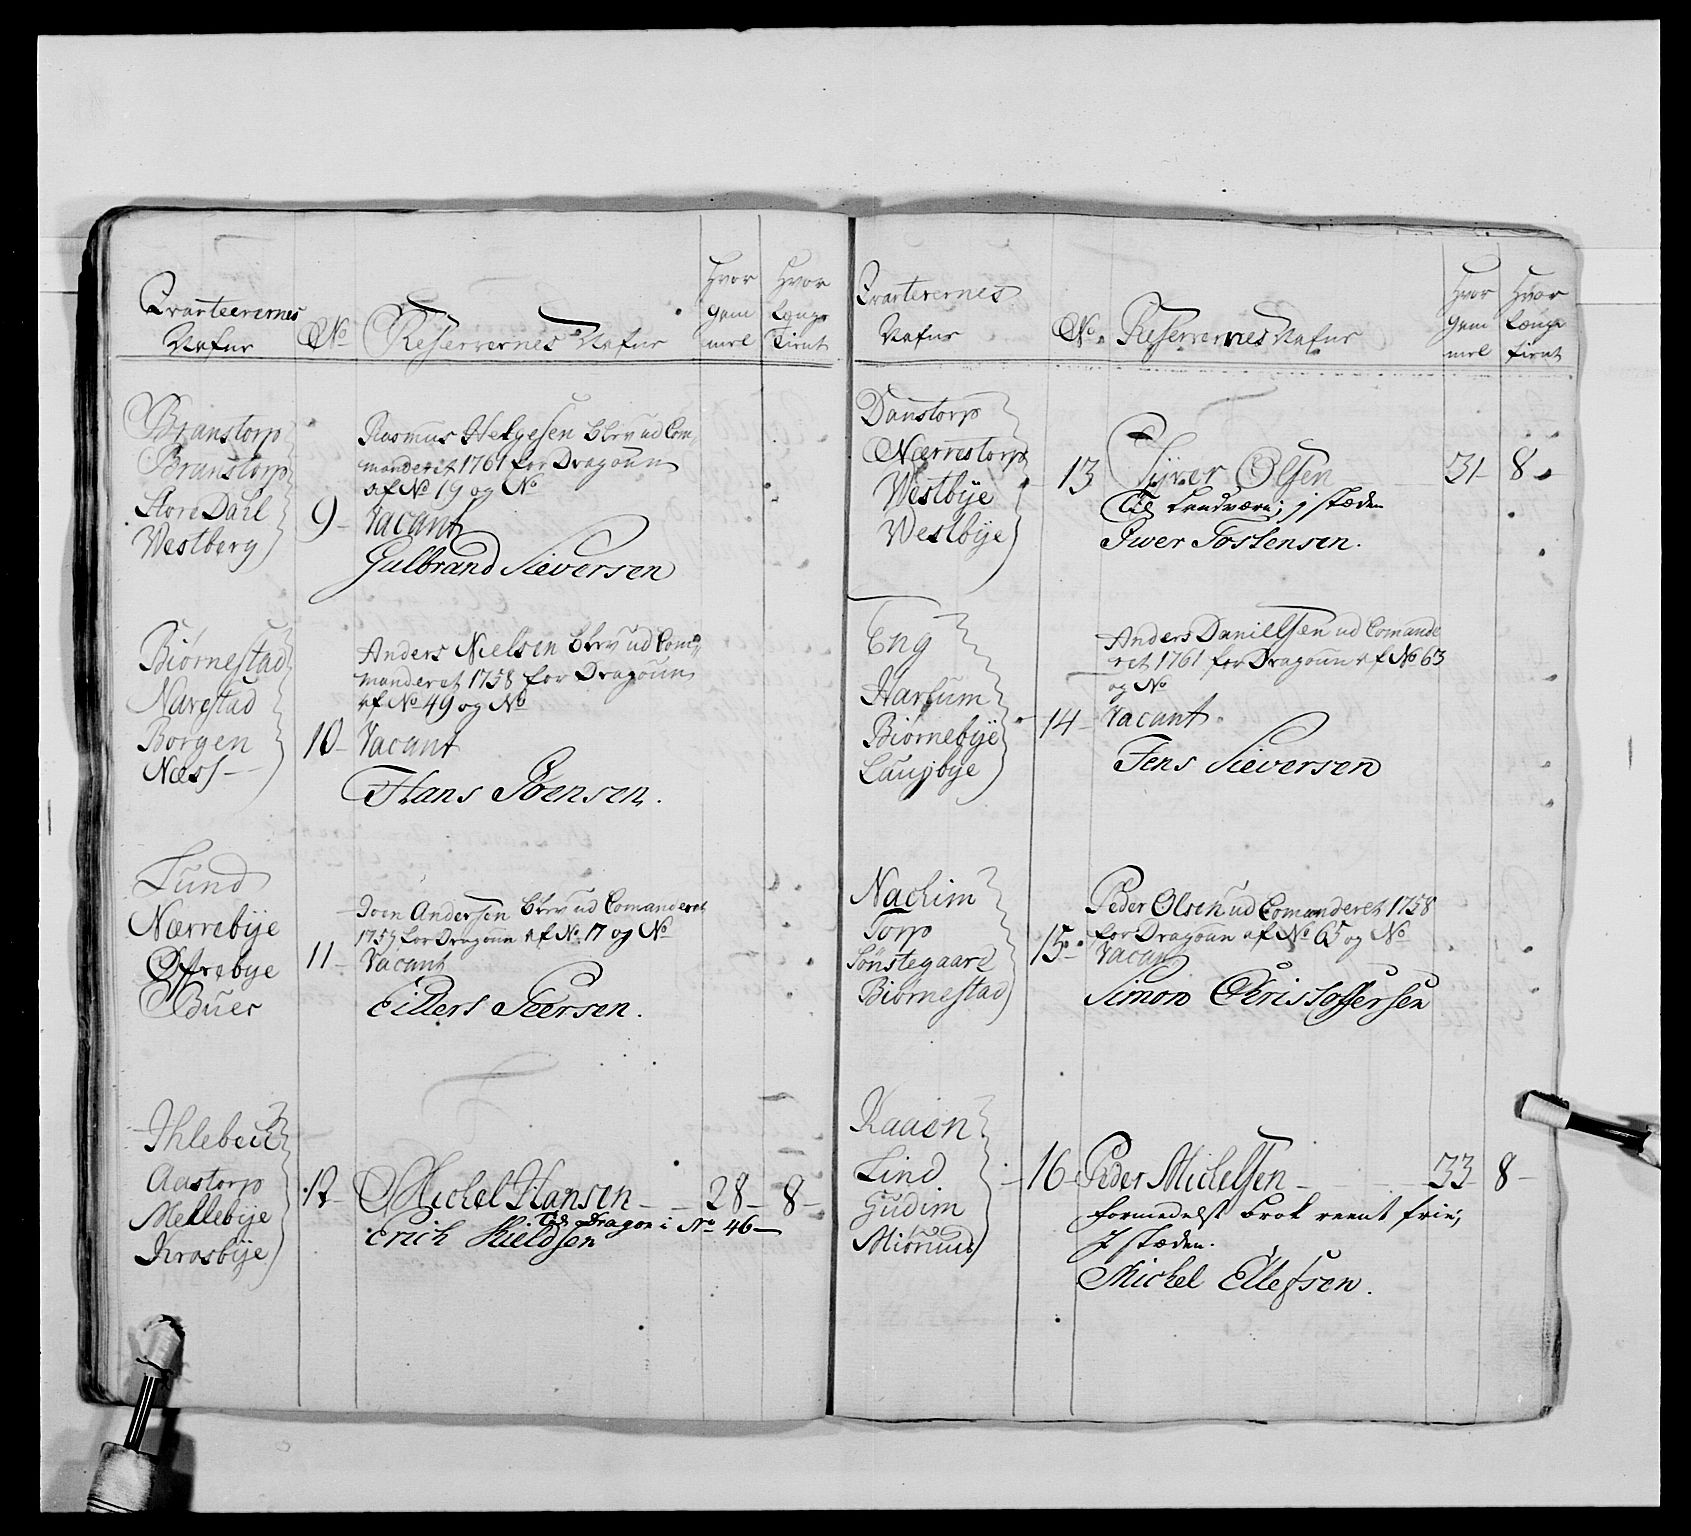 Qvarteerernes
Nafne
No
Reservernes Nafne
Hvor
gam
mel
Hvor
Længe
Tient
Branstorp
Branstorp
Store Dahl
Westberg
9
Rasmus Helgesen blev ud Com„
manderet 1761 for Dragoun
af No 19 og No
Vacant
Gulbrand Sieversen
Biörnestad
Navestad
Borgen
Næss
10
Anders Nielsen blev ud Com„
manderet 1758 for Dragoun
af No 49 og No
Vacant
Hans Joensen.
Lund
Nærrebye
Øfrebye
Buer
11
Joen Andersen blev ud Comanderet
1757 for Dragoun af No 17 og No
Vacant
Eillert Peersen.
Ihlebeck
Aastorp
Mellebye
Krosbye
12
Michel Hansen 28 8
Till Dragon i No 46
Erich Kieldsen
Qvarterernes
Nafne
No
Reservernes Nafne
Hvor
gam
mel
Hvor
Længe
tient
Danstorp
Nærrestorp
Westbye
Westbye
13
Syver Olsen 31 8
Till Landværn; i stæden
Iwer Tostensen.
Eng
Harfum
Biörnebye
Laujbye
14
Anders Danielsen ud Comande
ret 1761 for Dragoun af No 63
og No
Vacant
Jens Sieversen
Nachim
Torp
Sönstegaard
Biörnestad
15
Peder Olsen ud Comanderet 1758
for Dragoun af No 65 og No
Vacant
Simon Christoffersen
Kaaen
Lind
Gudim
16
Peder Michelsen 33 8
formedelst brok reent frie;
I stæden.
Michel Ellefsen.